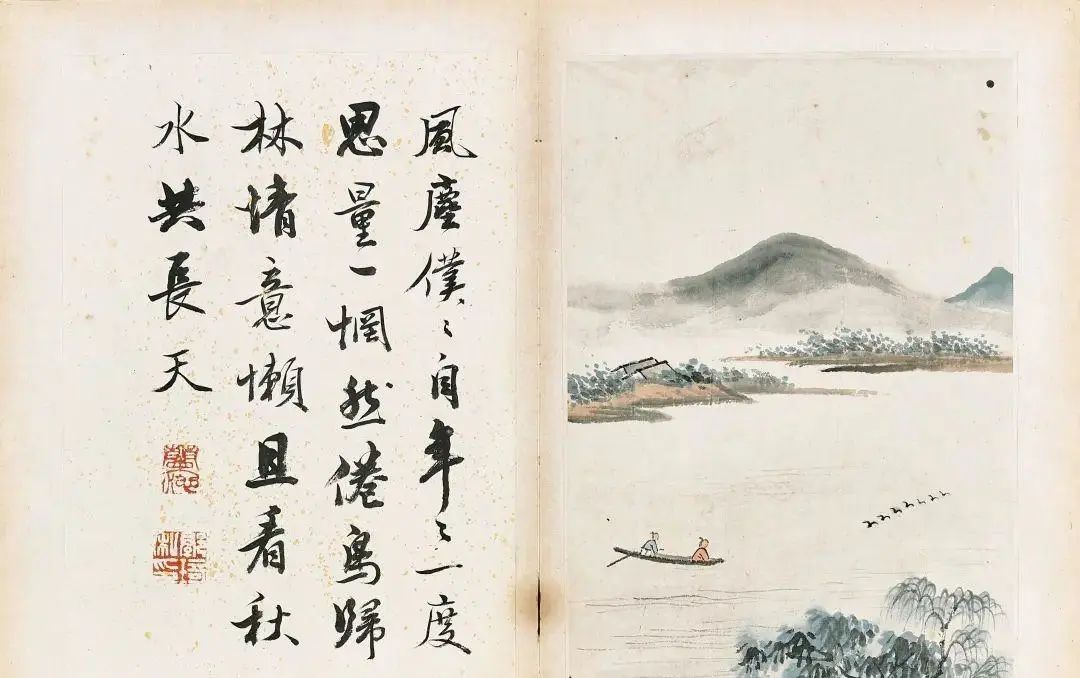 風塵僕〻自年〻一度
思量一惘然倦鳥歸
林情意懶且看秋
水共長天